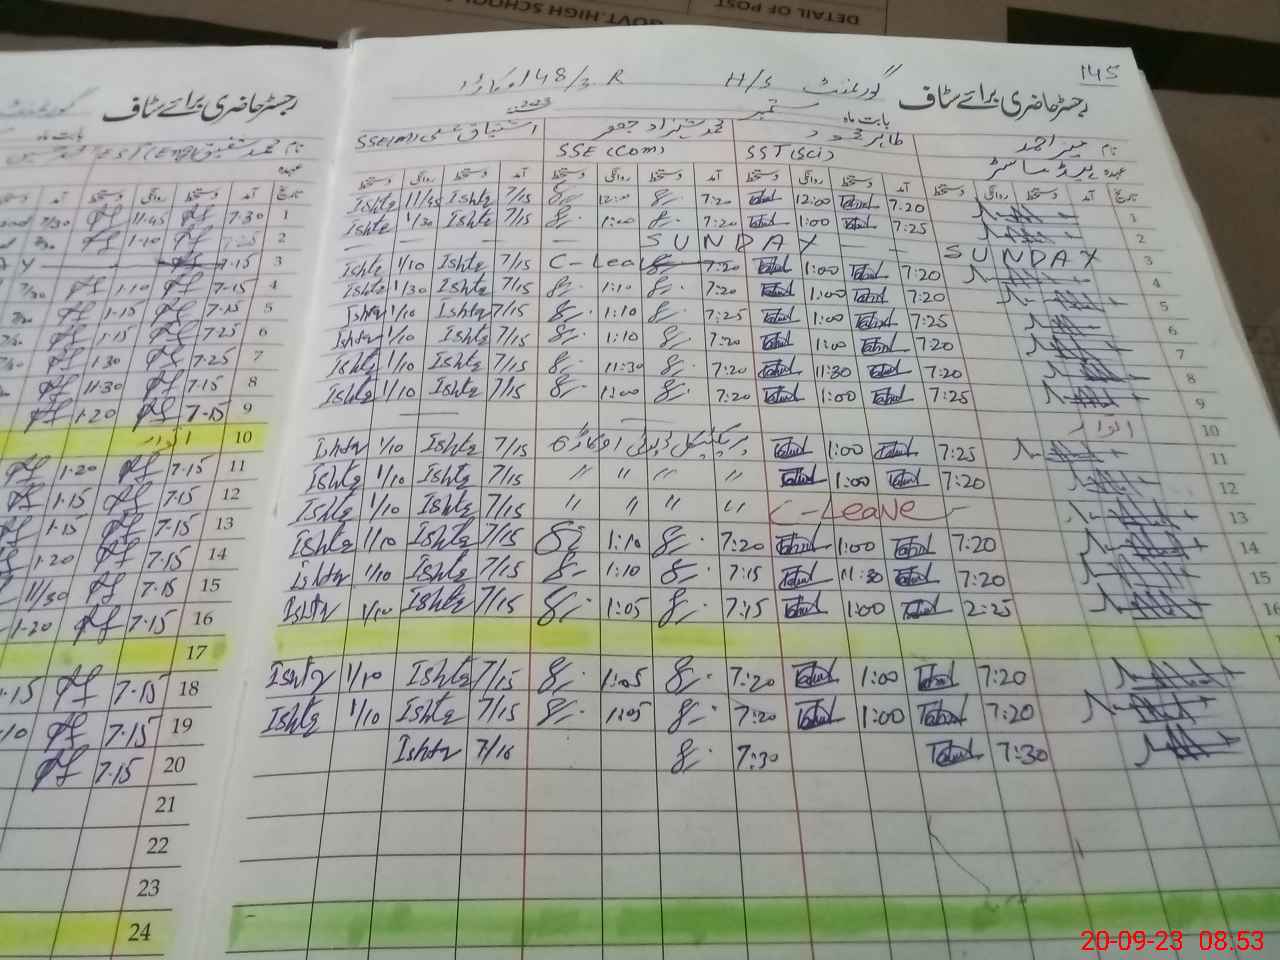 DETAIL OF POST
GOVT. HIGH SCHOOL
145
رجسٹر حاضری برائے سٹاف
گورنمنٹ H/S 148/3 R اوکاڑہ
بابت ماہ ستمبر 2023
نام
طاہر محمود
محمد شہزاد جعفر
اشتیاق علی SSE(M)
عہدہ ہیڈ ماسٹر
SST(Sci)
SSE (Com)
تاریخ آمد دستخط روانگی دستخط آمد دستخط روانگی دستخط آمد دستخط روانگی دستخط آمد دستخط روانگی دستخط
1 7:20 12:00 7:20 12:00 7/15 Ishtq 11/45 Ishtq
2 7:25 1:00 7:20 1:00 7/15 Ishtq 1/30 Ishtq
3 SUNDAY — — SUNDAY — — —
4 7:20 1:00 7:20 C-Lea 7/15 Ishtq 1/10 Ishtq
5 7:20 1:00 7:20 1:10 7/15 Ishtq 1/30 Ishtq
6 7:25 1:00 7:25 1:10 7/15 Ishtq 1/10 Ishtq
7 7:20 1:00 7:20 1:10 7/15 Ishtq 1/10 Ishtq
8 7:20 11:30 7:20 11:30 7/15 Ishtq 1/10 Ishtq
9 7:25 1:00 7:20 1:00 7/15 Ishtq 1/10 Ishtq
10 اتوار
11 7:25 1:00 پریکٹیکل ڈیوٹی اوکاڑہ 7/15 Ishtq 1/10 Ishtq
12 7:20 1:00 〃 〃 〃 〃 7/15 Ishtq 1/10 Ishtq
13 C-Leave 〃 〃 〃 〃 7/15 Ishtq 1/10 Ishtq
14 7:20 1:00 7:20 1:10 7/15 Ishtq 1/10 Ishtq
15 7:20 11:30 7:15 1:10 7/15 Ishtq 1/10 Ishtq
16 2:25 1:00 7:15 1:05 7/15 Ishtq 1/10 Ishtq
7:20 1:00 7:20 1:05 7/15 Ishtq 1/10 Ishtq
7:20 1:00 7:20 1:05 7/15 Ishtq 1/10 Ishtq
7:30 7:30 7/16 Ishtq
رجسٹر حاضری برائے سٹاف
بابت ماہ
نام محمد شفیق EST(Eng)
عہدہ
تاریخ آمد دستخط روانگی دستخط آمد
1 7.30 11.45 7/30
2 7.25 1.10
3 7.15 AY
4 7.15 1.10 7/30
5 7.15 1.15
6 7.25 1.15
7 7.25 1.30
8 7.15 11.30
9 7.15 1.20
10 اتوار
11 7.15 1.20
12 7.15 1.15
13 7.15 1.15
14 7.15 1.20
15 7.15 11/30
16 7.15 1.20
17
18 7.15 1.15
19 7.15
20 7.15
21
22
23
24
20-09-23 08:53